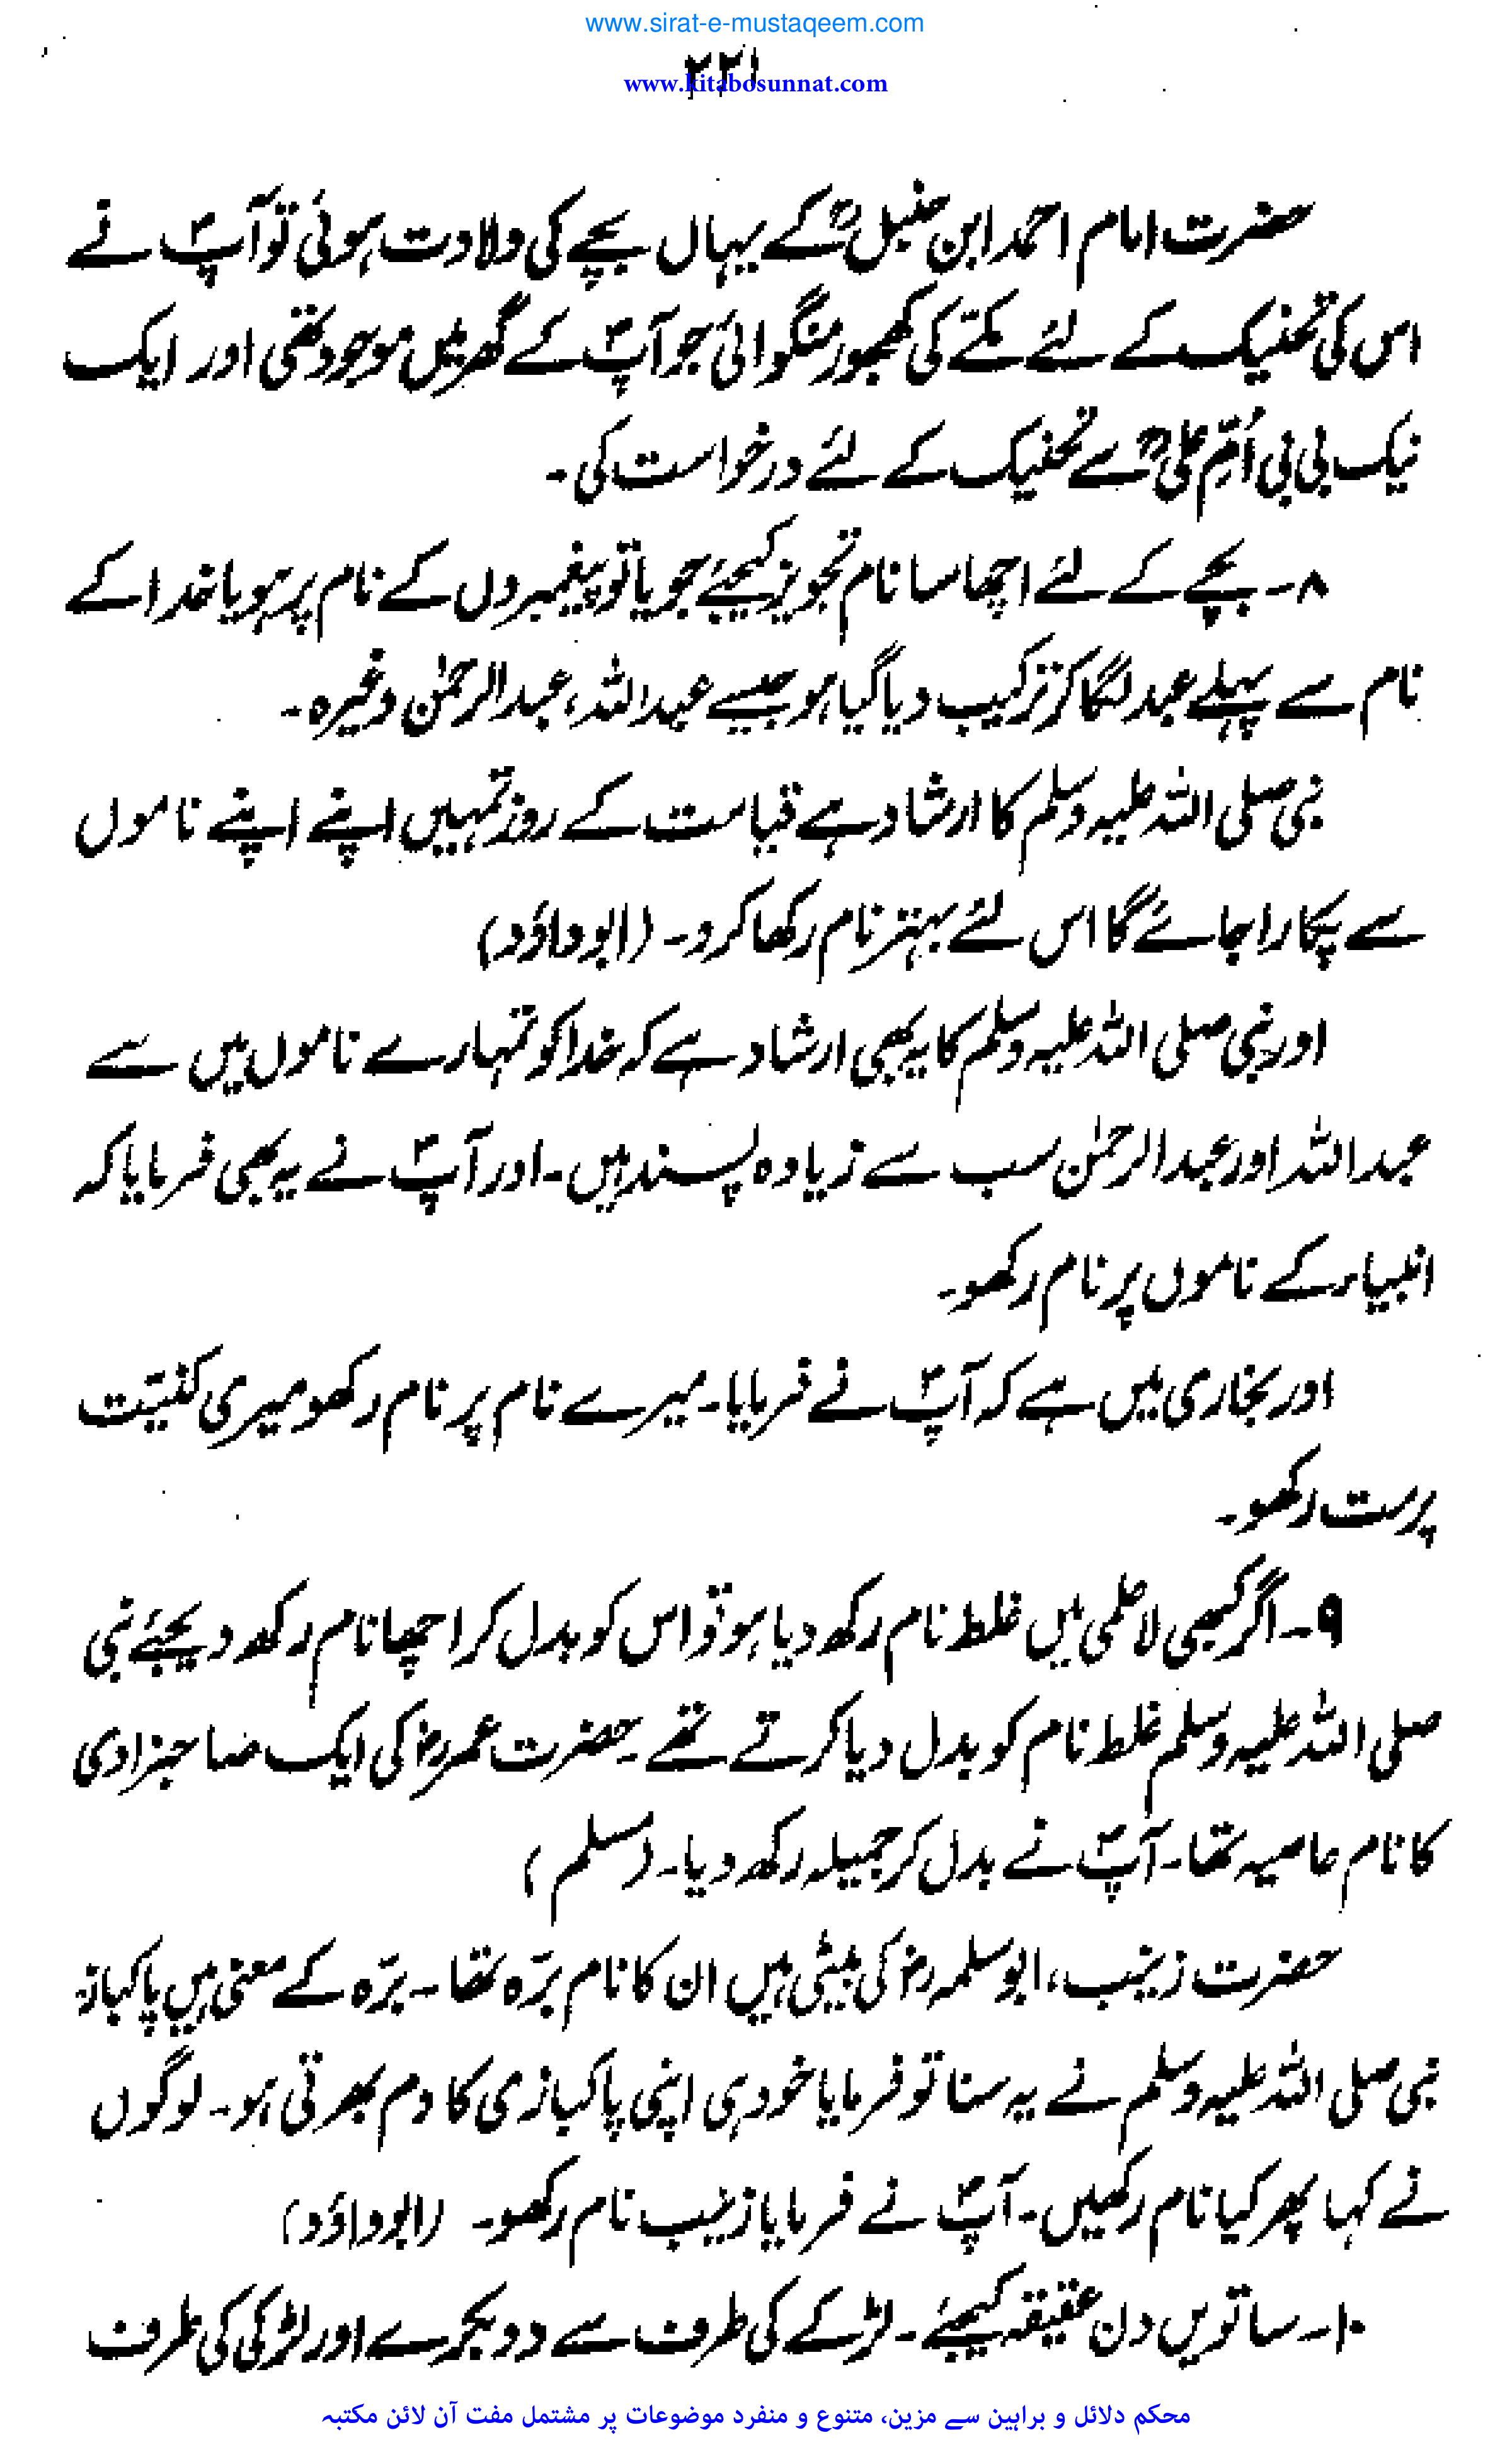 www.sirat-e-mustaqeem.com
۲۲۱
www.kitabosunnat.com
حضرت امام احمد ابن حنبلؒ کے یہاں بچے کی ولادت ہوئی تو آپؒ نے
اس کی تحنیک کے لئے مکّے کی کھجور منگوائی جو آپؒ کے گھر میں موجود تھی اور ایک
نیک بی بی اُمّ علیؒ سے تحنیک کے لئے درخواست کی۔
۸۔ بچے کے لئے اچھا سا نام تجویز کیجئے جو یا تو پیغمبروں کے نام پر ہو یا خدا کے
نام سے پہلے عبد لگا کر ترکیب دیا گیا ہو جیسے عبداللہ، عبدالرحمٰن وغیرہ۔
نبی صلی اللہ علیہ وسلم کا ارشاد ہے قیامت کے روز تمہیں اپنے اپنے ناموں
سے پکارا جائے گا اس لئے بہتر نام رکھا کرو۔ (ابوداؤد)
اور نبی صلی اللہ علیہ وسلم کا یہ بھی ارشاد ہے کہ خدا کو تمہارے ناموں میں سے
عبداللہ اور عبدالرحمٰن سب سے زیادہ پسند ہیں۔ اور آپؐ نے یہ بھی فرمایا کہ
انبیاء کے ناموں پر نام رکھو۔
اور بخاری میں ہے کہ آپؐ نے فرمایا۔ میرے نام پر نام رکھو میری کنیّت
پر مت رکھو۔
۹۔ اگر کبھی لاعلمی میں غلط نام رکھ دیا ہو تو اس کو بدل کر اچھا نام رکھ دیجئے نبی
صلی اللہ علیہ وسلم غلط نام کو بدل دیا کرتے تھے۔ حضرت عمررضؓ کی ایک صاحبزادی
کا نام عاصیہ تھا۔ آپؐ نے بدل کر جمیلہ رکھ دیا۔ (مسلم)
حضرت زینب، ابوسلمہ رضؓ کی بیٹی ہیں ان کا نام برّہ تھا۔ برّہ کے معنی ہیں پاکباز،
نبی صلی اللہ علیہ وسلم نے یہ سنا تو فرمایا خود ہی اپنی پاکبازی کا دم بھرتی ہو۔ لوگوں
نے کہا پھر کیا نام رکھیں۔ آپؐ نے فرمایا زینب نام رکھو۔ (ابوداؤد)
۱۰۔ ساتویں دن عقیقہ کیجئے۔ لڑکے کی طرف سے دو بکرے اور لڑکی کی طرف
محکم دلائل و براہین سے مزین، متنوع و منفرد موضوعات پر مشتمل مفت آن لائن مکتبہ